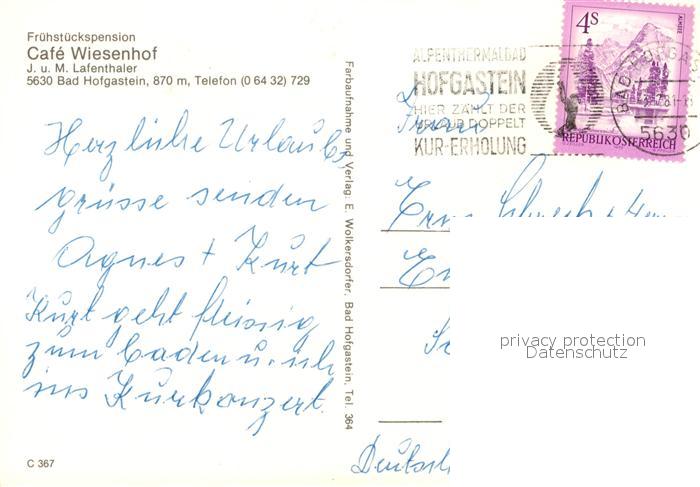 Frühstückspension
Café Wiesenhof
J. u. M. Lafenthaler
5630 Bad Hofgastein, 870 m, Telefon (0 64 32) 729
Herzliche Urlaubs
grüsse senden
Agnes + Kurt
Kurt geht fleissig
zum baden u. ich
ins Kurkonzert.
C 367
Farbaufnahme und Verlag: E. Wolkersdorfer, Bad Hofgastein, Tel. 364
ALPENTHERMALBAD
HOFGASTEIN
HIER ZÄHLT DER
URLAUB DOPPELT
KUR-ERHOLUNG
4S
ALMSEE
REPUBLIK ÖSTERREICH
5630
privacy protection
Datenschutz
Deutsch